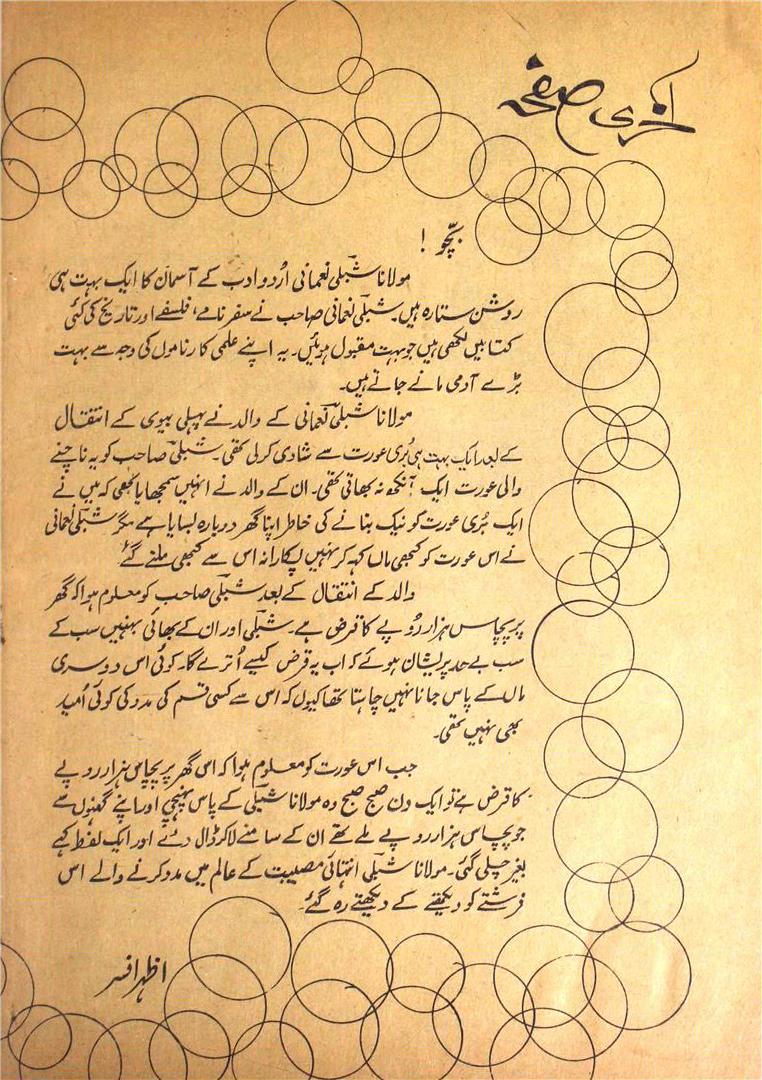 آخری صفحہ
بچّو !
مولانا شبلیؔ نعمانی اُردو ادب کے آسمان کا ایک بہت ہی
روشن ستارہ ہیں۔ شبلیؔ نعمانی صاحب نے سفر نامے، فلسفے اور تاریخ کی کئی
کتابیں لکھی ہیں جو بہت مقبول ہوئیں۔ یہ اپنے علمی کارناموں کی وجہ سے بہت
بڑے آدمی مانے جاتے ہیں۔
مولانا شبلیؔ نعمانی کے والد نے پہلی بیوی کے انتقال
کے بعد ایک بہت ہی بُری عورت سے شادی کرلی تھی۔ شبلیؔ صاحب کو یہ ناچنے
والی عورت ایک آنکھ نہ بھاتی تھی۔ ان کے والد نے انہیں سمجھایا بھی کہ میں نے
ایک بُری عورت کو نیک بنانے کی خاطر اپنا گھر دوبارہ بسایا ہے مگر شبلیؔ نعمانی
نے اس عورت کو کبھی ماں کہہ کر نہیں پکارا نہ اس سے کبھی ملنے گئے
والد کے انتقال کے بعد شبلیؔ صاحب کو معلوم ہوا کہ گھر
پر پچاس ہزار رُوپے کا قرض ہے۔ شبلیؔ اور ان کے بھائی بہنیں سب کے
سب بے حد پریشان ہوئے کہ اب یہ قرض کیسے اُترے گا۔ کوئی اس دوسری
ماں کے پاس جانا نہیں چاہتا تھا کیوں کہ اس سے کسی قسم کی مدد کی کوئی اُمید
بھی نہیں تھی۔
جب اس عورت کو معلوم ہوا کہ اس گھر پر پچاس ہزار روپے
کا قرض ہے تو ایک دن صبح صبح وہ مولانا شبلیؔ کے پاس پہنچی اور اپنے گھنوں سے
جو پچاس ہزار روپے ملے تھے ان کے سامنے لاکر ڈال دئے اور ایک لفظ کہے
بغیر چلی گئی۔ مولانا شبلیؔ انتہائی مصیبت کے عالم میں مدد کرنے والے اس
فرشتے کو دیکھتے کے دیکھتے رہ گئے۔
اظہر افسر